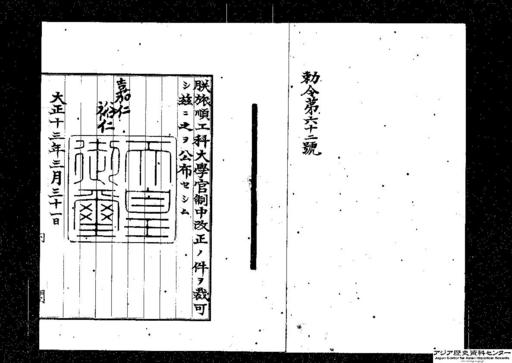 勅令第六十二號
朕旅順工科大學官制中改正ノ件ヲ裁可
シ玆ニ之ヲ公布セシム
嘉仁
裕仁
天皇
御璽
大正十三年三月三十一日
アジア歴史資料センター
Japan Center for Asian Historical Records